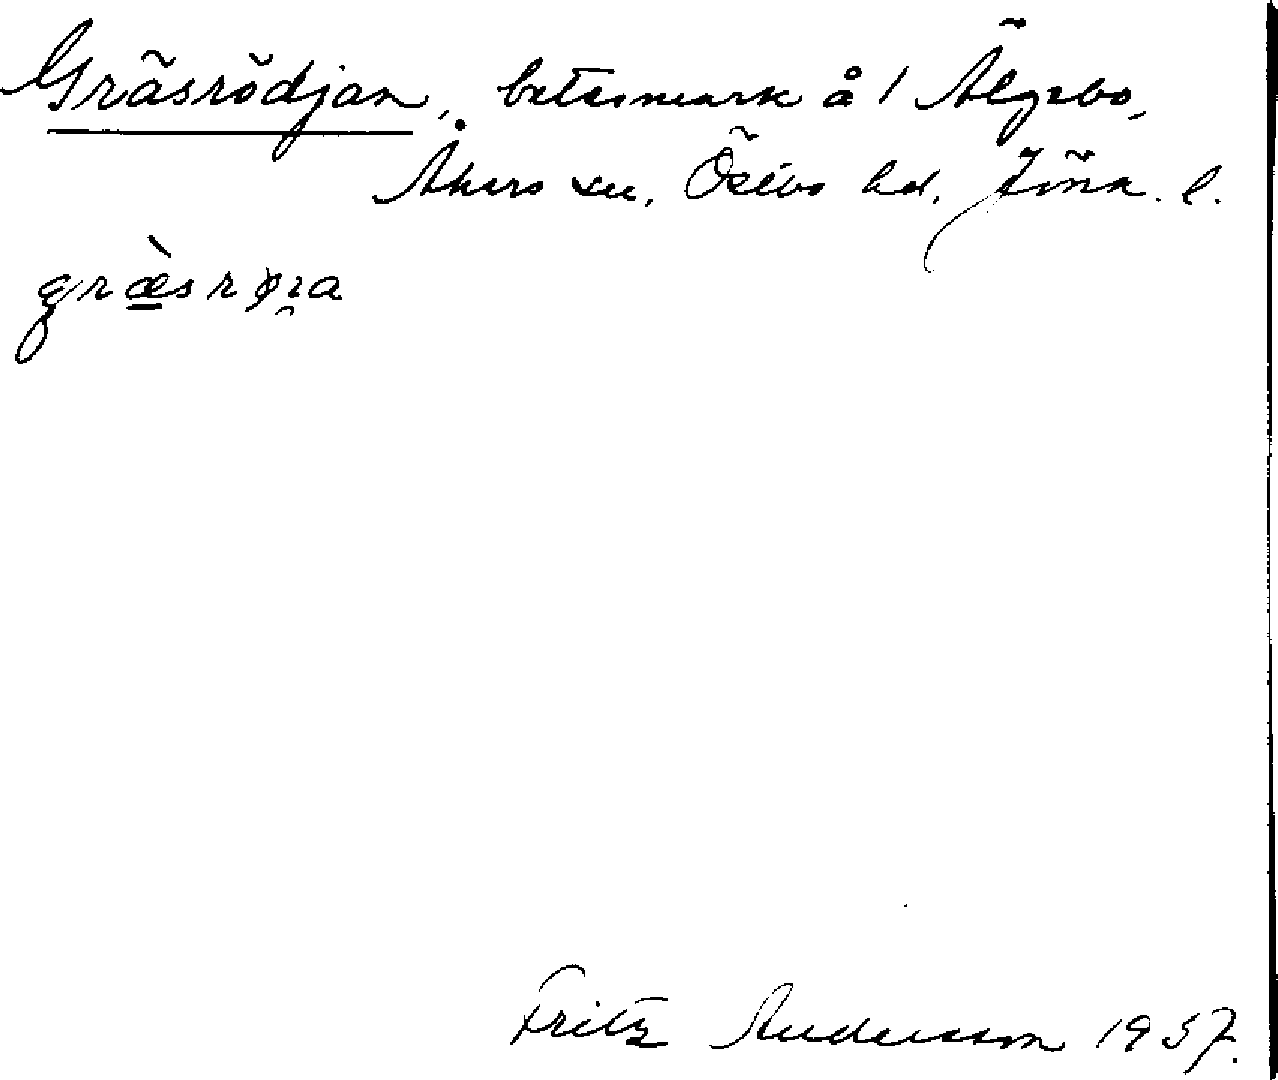 Gräsrödjan, betesmark å 1 Älgebo,
Åkers sn, Östbo hd, Jönk. l.
græ̀srøɿa
Fritz Andersson 1957.